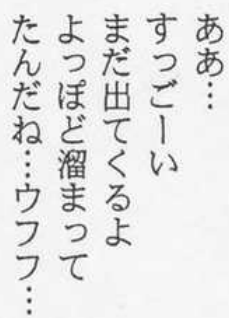 ああ…
すっごーい
まだ出てくるよ
よっぽど溜まって
たんだね…ウフフ…